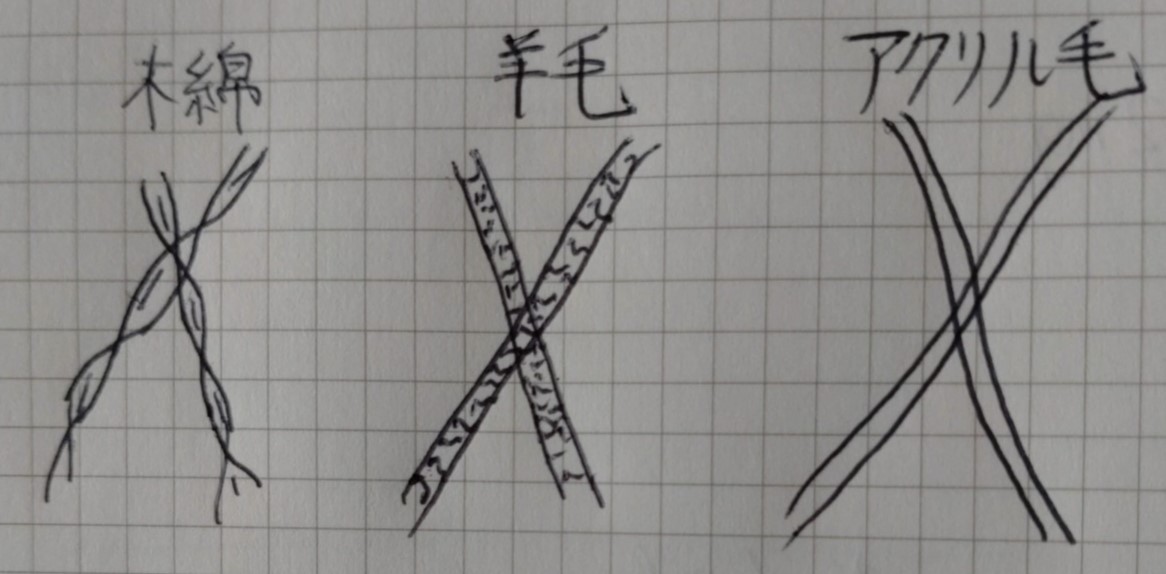 木綿
羊毛
アクリル毛